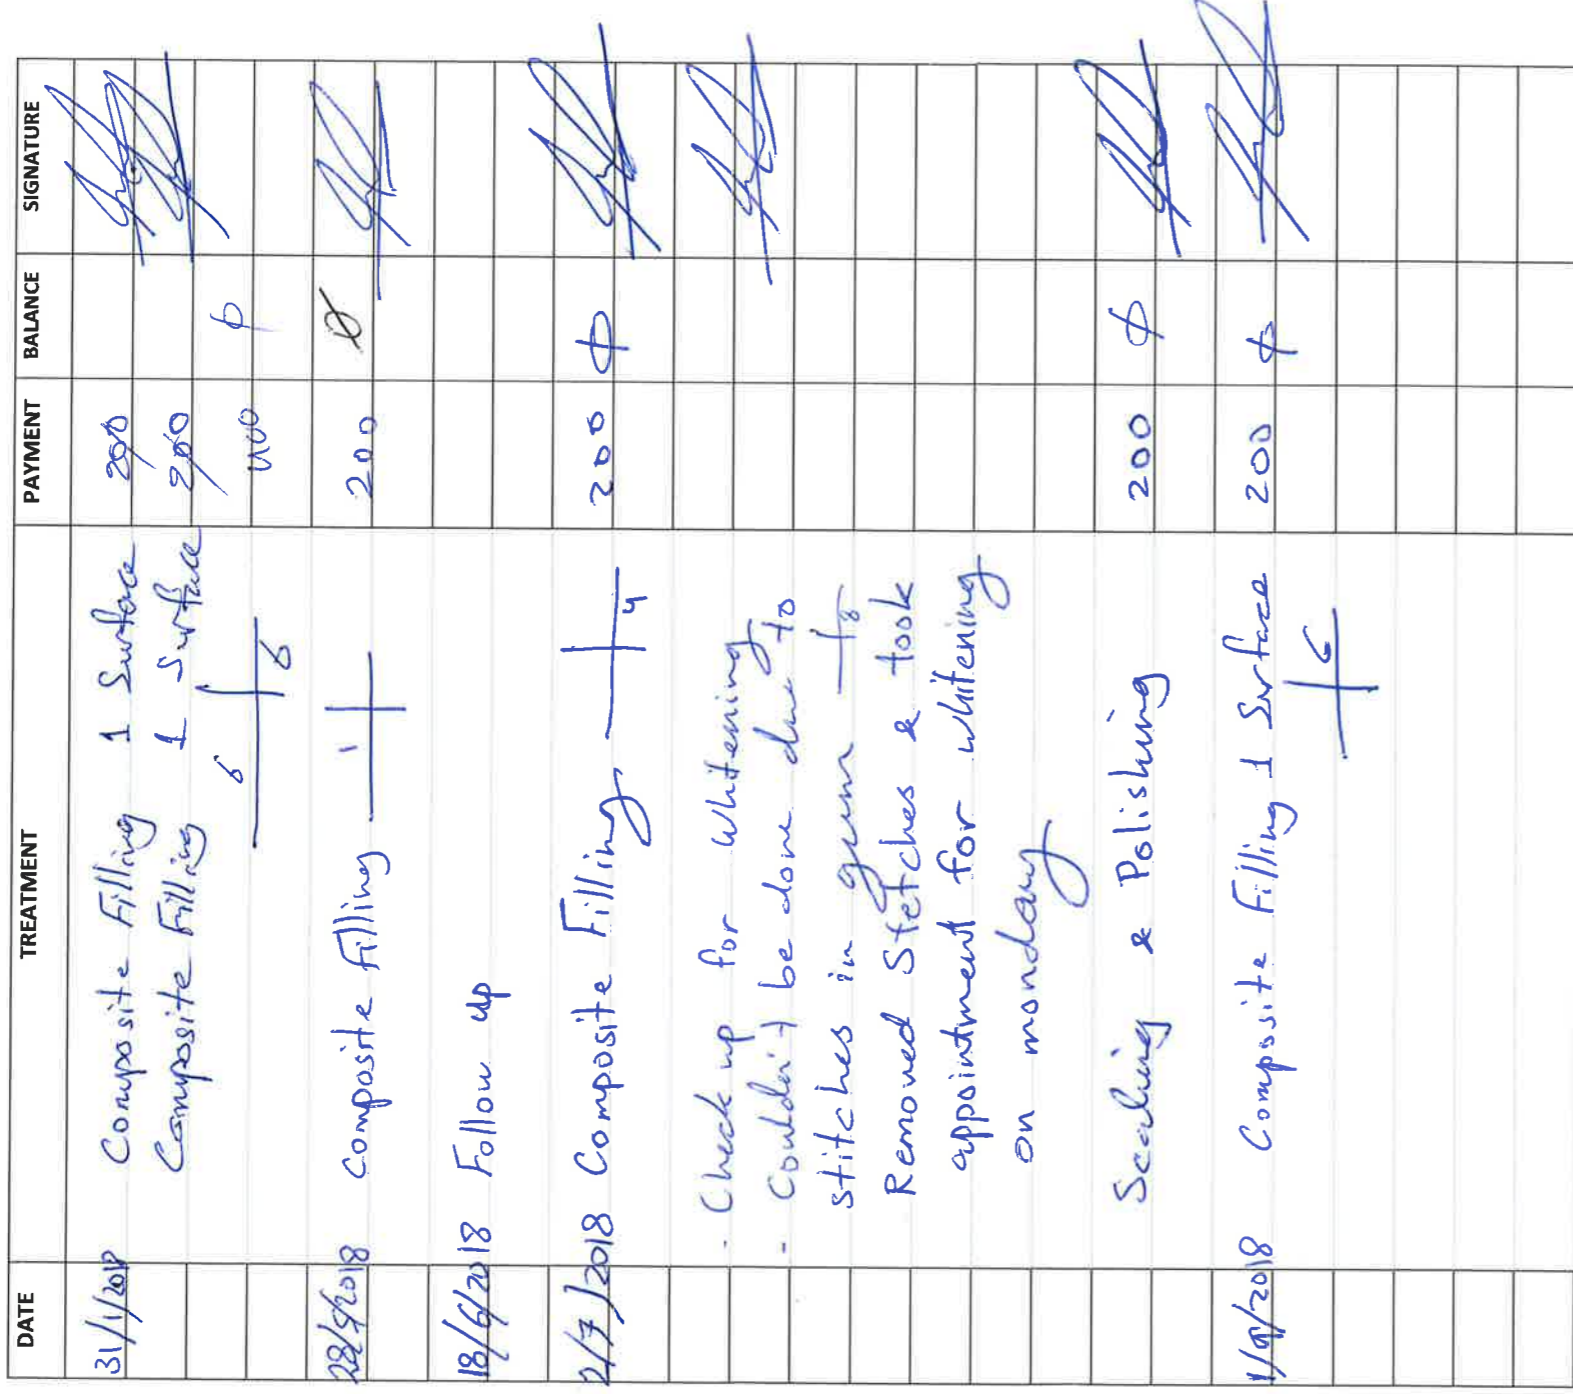 DATE TREATMENT PAYMENT BALANCE SIGNATURE
31/1/2018 Composite Filling 1 Surface 200
Composite Filling 1 Surface 200
6 6 400 ϕ
28/5/2018 Composite Filling 1 200 ϕ
18/6/2018 Follow up
2/7/2018 Composite Filling 4 200 ϕ
- Check up for whitening
- Couldn't be done due to
stitches in gum 8
Removed Stetches & took
appointment for whitening
on monday
Scaling & Polishing 200 ϕ
2018 Composite Filling 1 Surface 200 ϕ
6